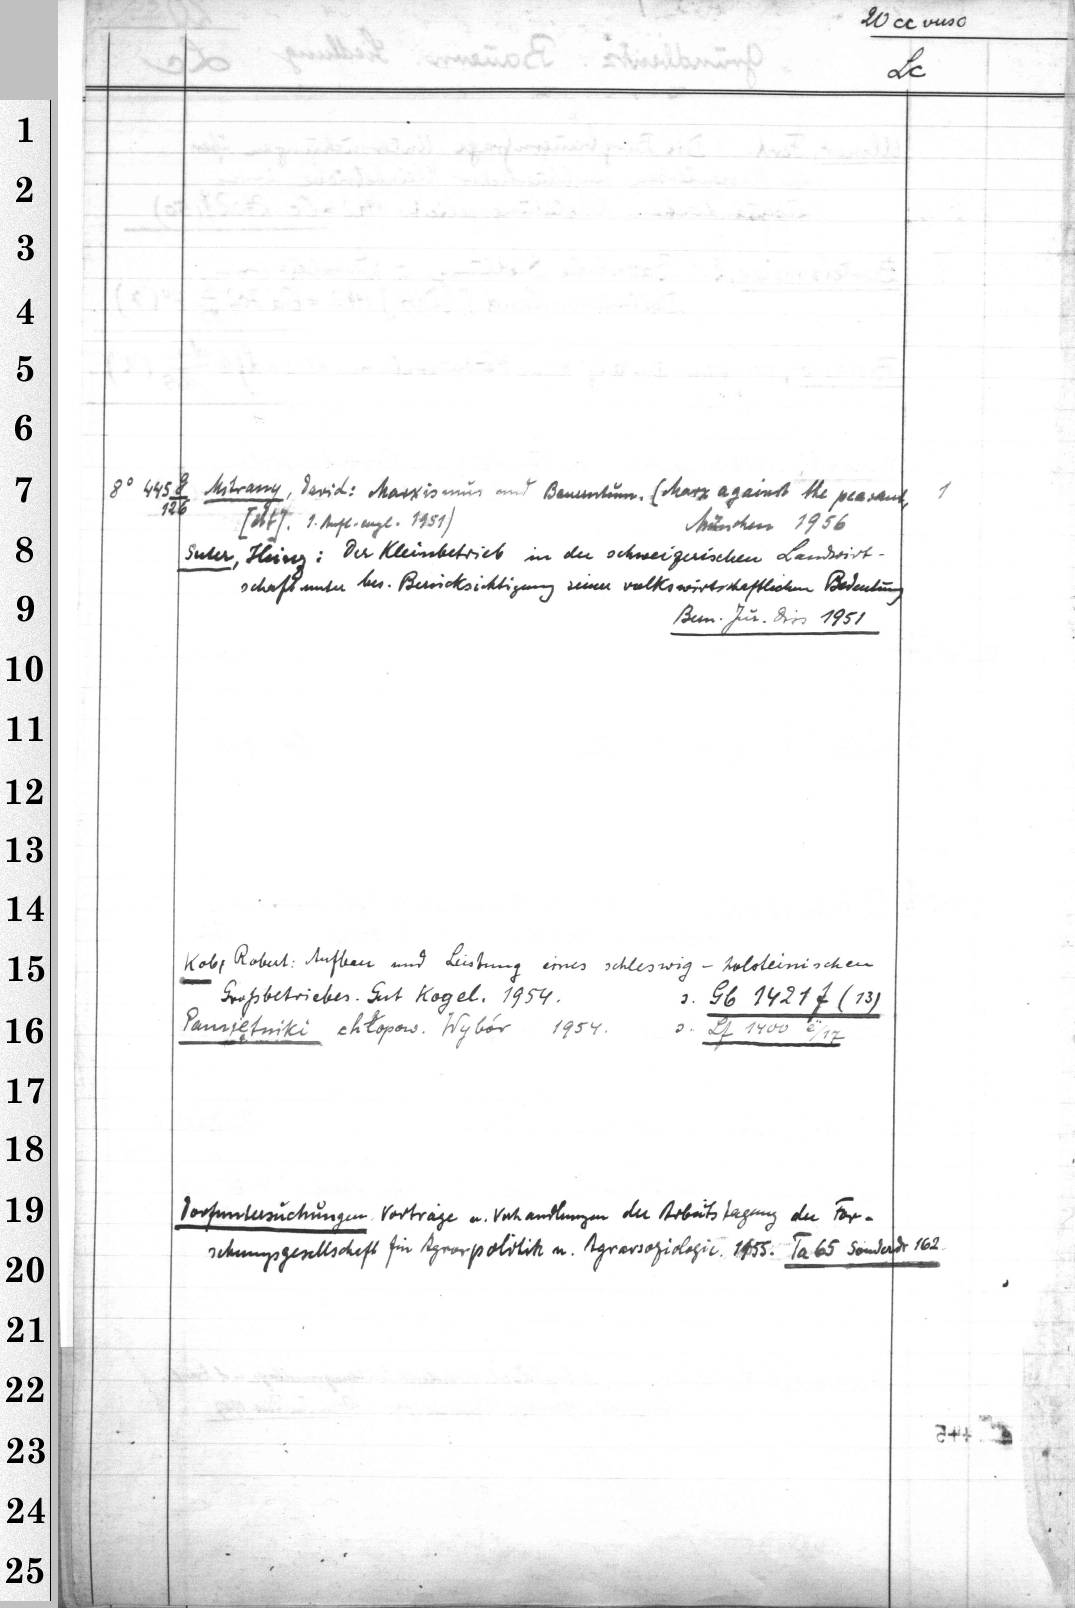 20 cc vuso
Lc
8° 445 g Mitrany, David: Marxismus und Bauerntum. (Marx against the peasant, 1
126 [dt]. 1. Aufl. engl. 1951) München 1956
Suter, Heinz: Der Kleinbetrieb in der schweizerischen Landwirt-
schaft unter bes. Berücksichtigung seiner volkswirtschaftlichen Bedeutung
Bern. Jur. Diss 1951
Kob, Robert: Aufbau und Leistung eines schleswig-holsteinischen
Großbetriebes. Gut Kogel. 1954. s. Gb 1421 f (13)
Pamiętniki chłopow. Wybór 1954. s. Lf 1400 e/17
Dorfuntersuchungen. Vorträge u. Verhandlungen der Arbeitstagung der For-
schungsgesellschaft für Agrarpolitik u. Agrarsoziologie. 1955. Ta 65 Sonderdr 162